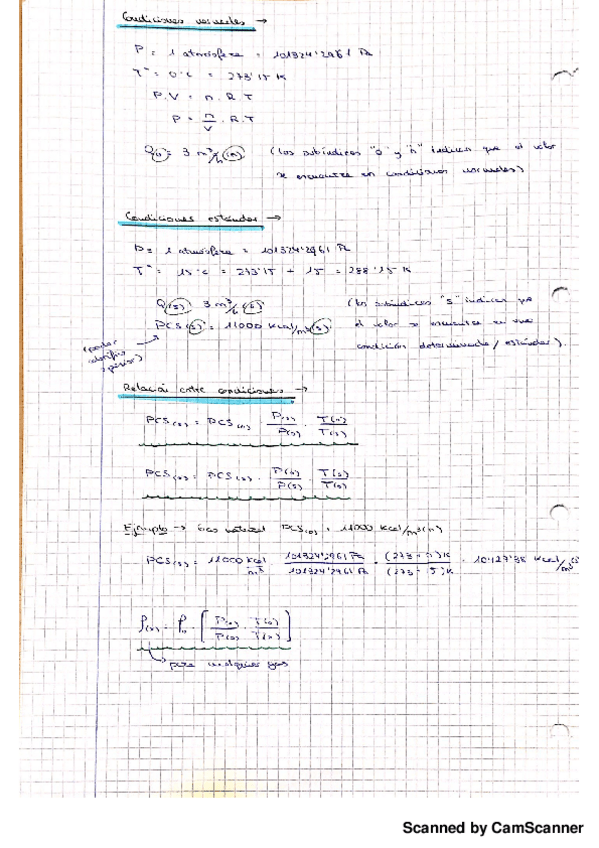 Condiciones normales →
P = 1 atmósfera = 101324'2961 Pa
Tª = 0ºc = 273'15 K
P.V = n.R.T
P = n/V . R.T
Q(n) = 3 m³/h (n) (Los subíndices "0" y "n" indican que el valor
se encuentra en condiciones normales)
Condiciones estándar →
P = 1 atmósfera = 101324'2961 Pa
Tª = 15ºc = 273'15 + 15 = 288'15 K
Q(s) = 3 m³/h (s) (los subíndices "s" indican que
PCS(s) = 11000 Kcal/m³(s) el valor se encuentra en una
condición determinada / estándar).
(poder
calorífico
superior)
Relación entre condiciones →
PCS(s) = PCS(n) .
PCS(s) = PCS(o) .
Ejemplo → Gas natural PCS(o) = 11000 Kcal/m³(n)
PCS(s) = 11000 Kcal/m³ . 101324'2961 Pa / 101324'2961 Pa
para cualquier gas
Scanned by CamScanner